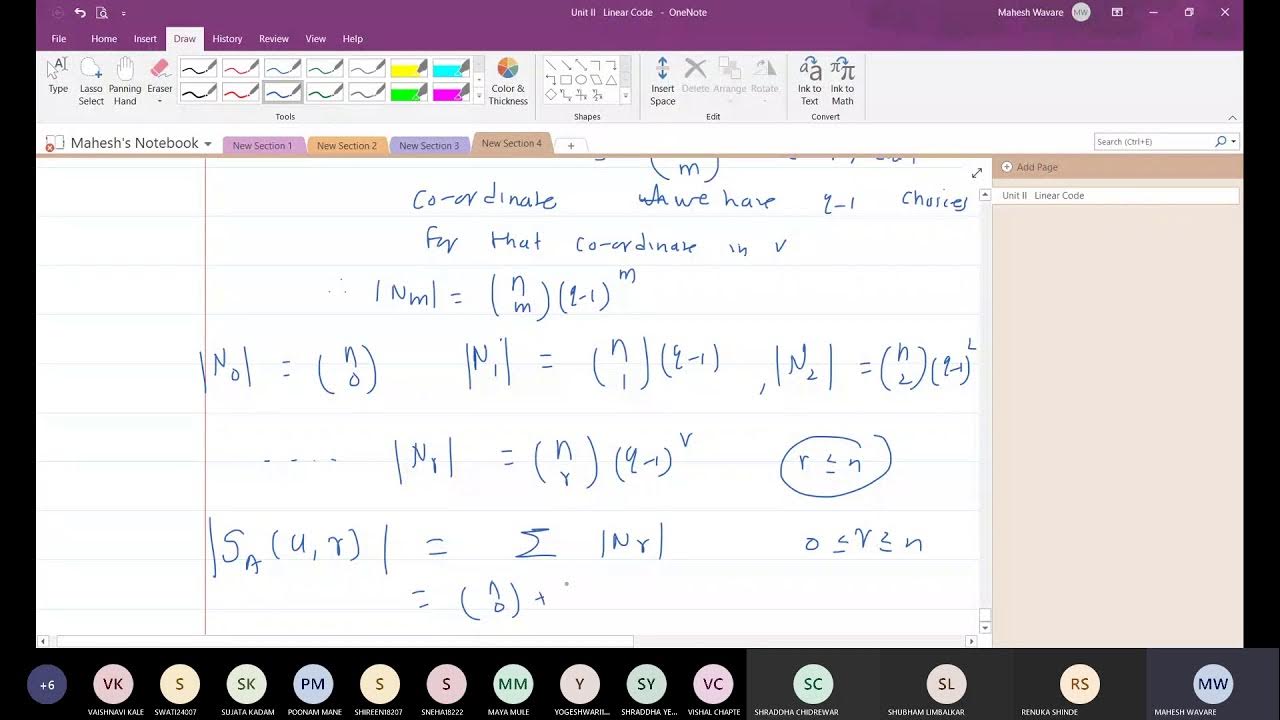 Unit II Linear Code - OneNote
Mahesh Wavare MW
File Home Insert Draw History Review View Help
Type Lasso Select Panning Hand Eraser Color & Thickness Insert Space Delete Arrange Rotate Ink to Text Ink to Math
Tools Shapes Edit Convert
Mahesh's Notebook New Section 1 New Section 2 New Section 3 New Section 4 + Search (Ctrl+E)
Add Page
Unit II Linear Code
m)
co-ordinate we have q-1 choices
for that co-ordinate in v
∴ |Nm| = (n m)(q-1)^m
|N0| = (n 0) |N1| = (n 1)(q-1) , |N2| = (n 2)(q-1)^2
.... |Nr| = (n r)(q-1)^r r ≤ n
|SA(u,r)| = Σ |Nr| 0 ≤ r ≥ n
= (n 0) +
+6 VK S SK PM S S MM Y SY VC SC SL RS MW
VAISHNAVI KALE SWATI24007 SUJATA KADAM POONAM MANE SHIREEN18207 SNEHA18222 MAYA MULE YOGESHWARII... SHRADDHA YE... VISHAL CHAPTE SHRADDHA CHIDREWAR SHUBHAM LIMBALKAR RENUKA SHINDE MAHESH WAVARE